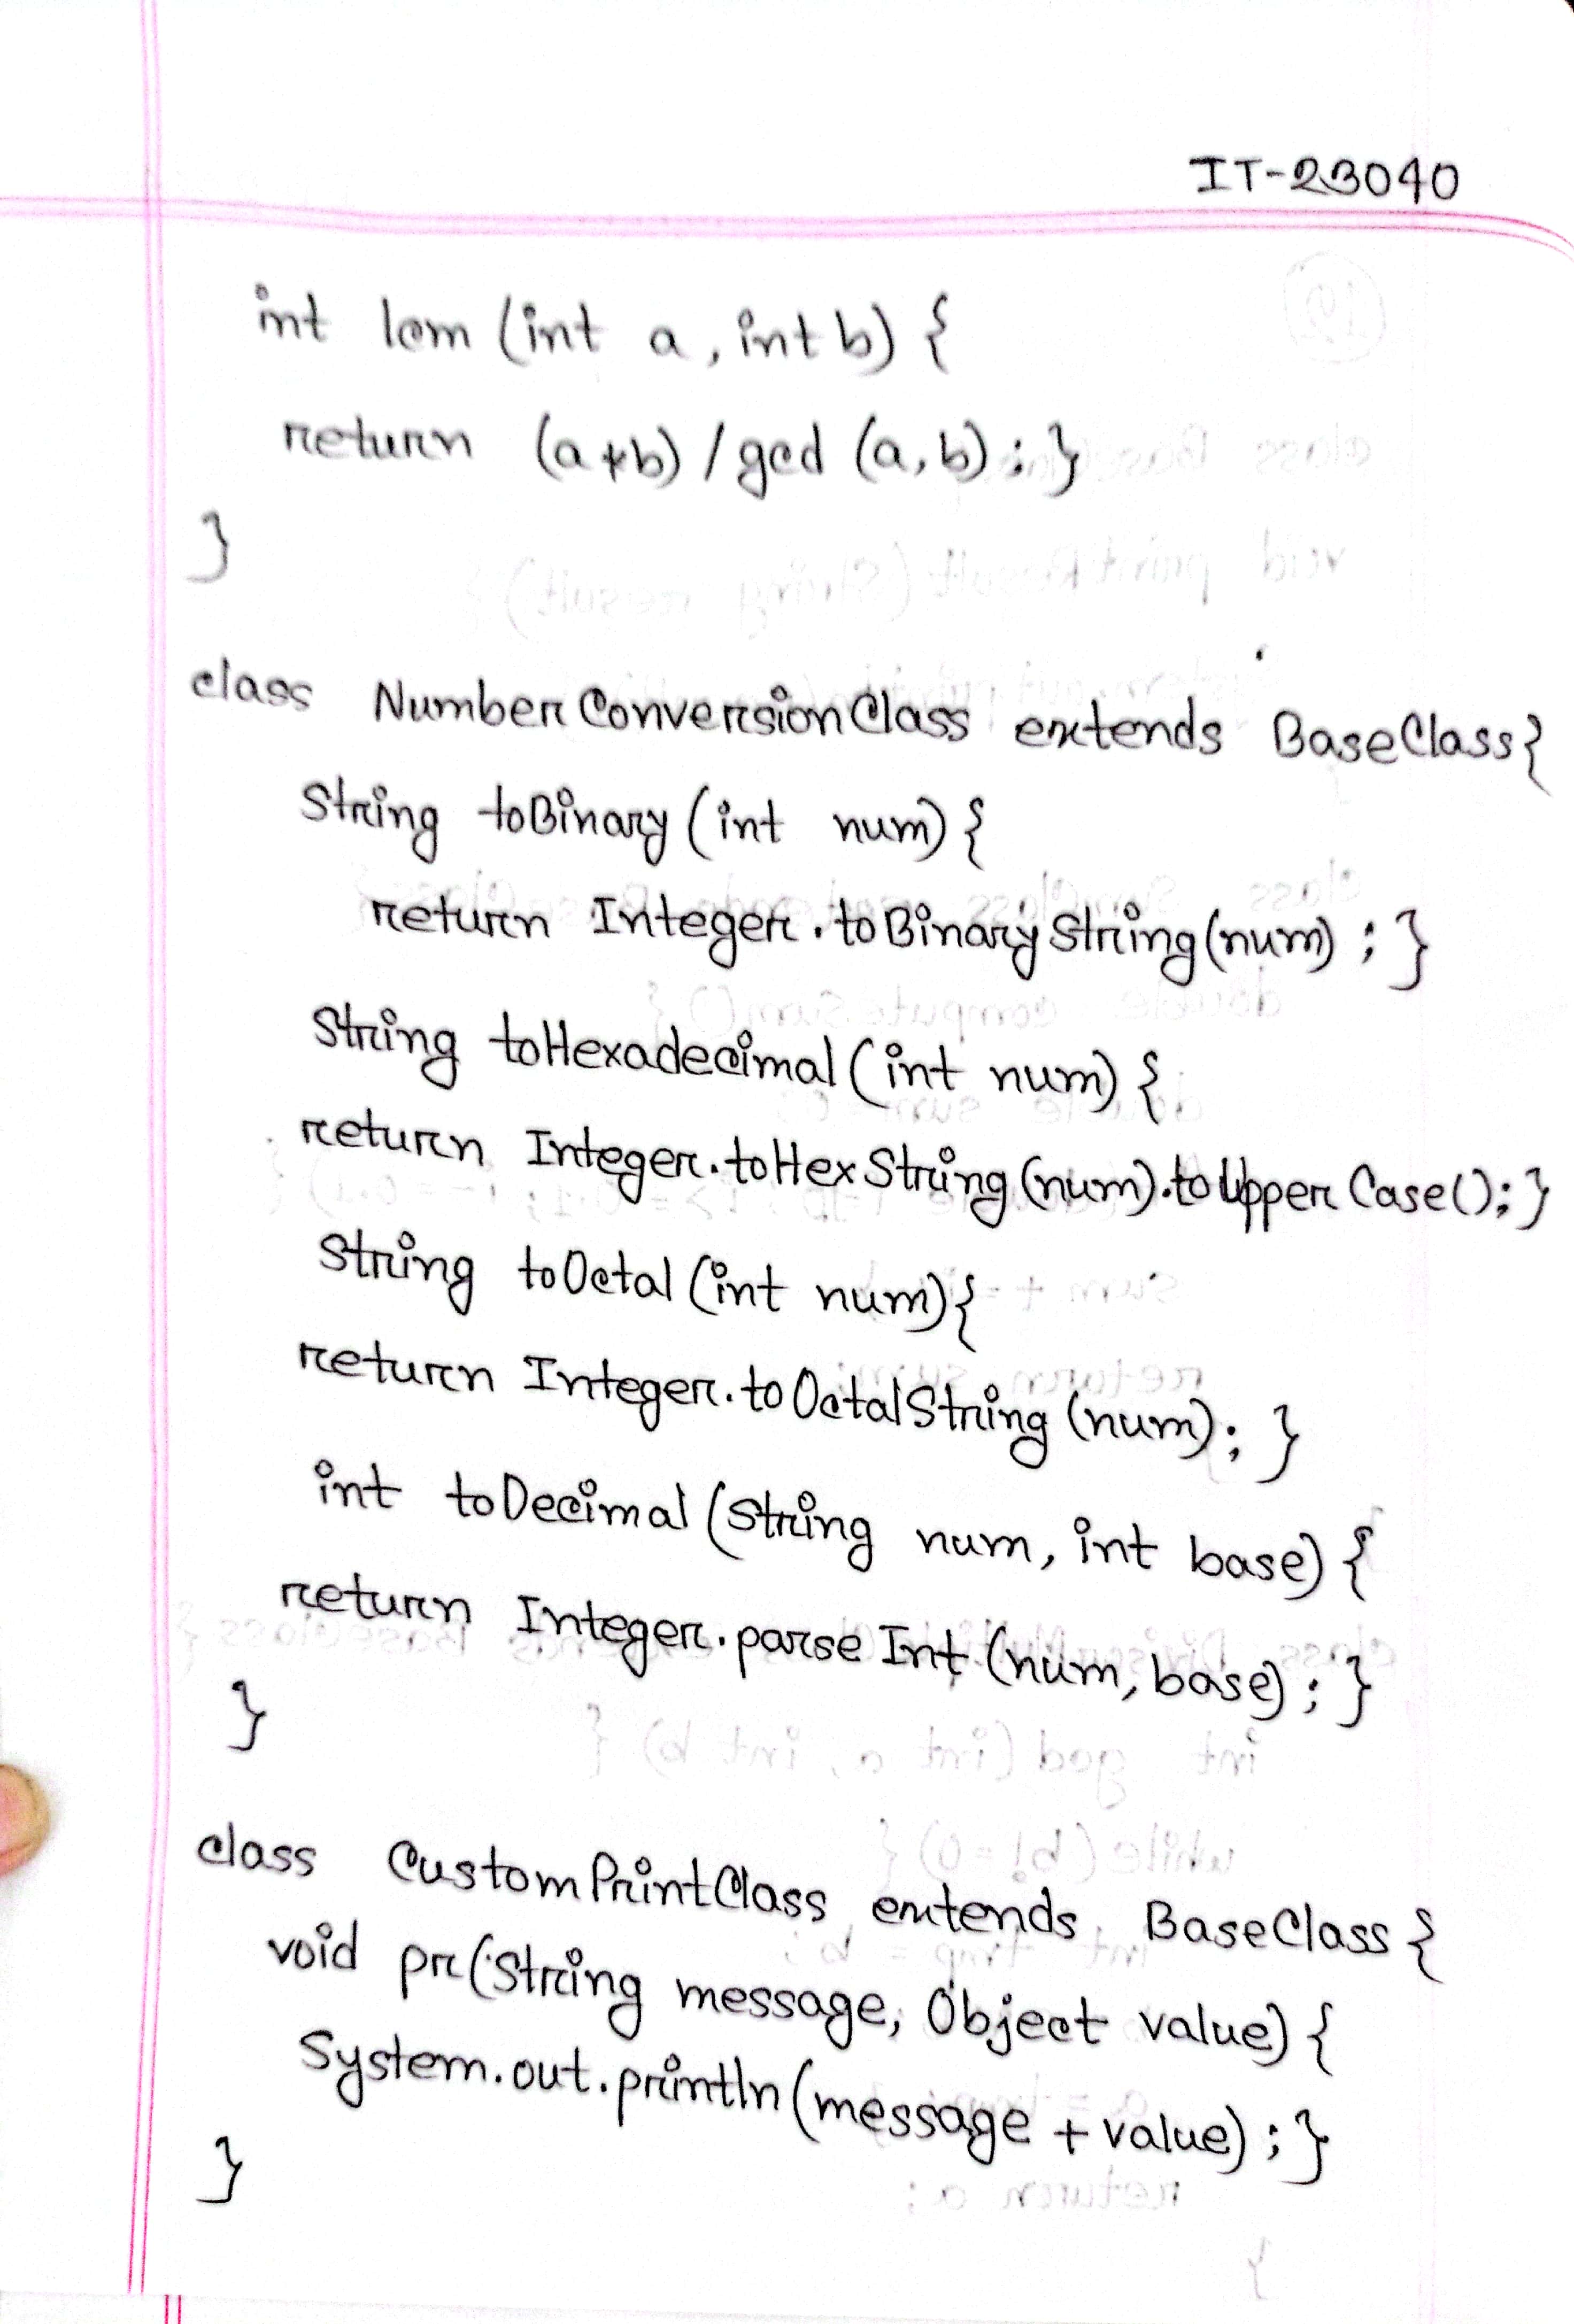 IT-23040
int lcm (int a, int b) {
return (a*b) / gcd (a, b) ; }
}
class NumberConversionClass extends BaseClass{
String toBinary (int num) {
return Integer.toBinaryString(num) ; }
String toHexadecimal (int num) {
return Integer.toHexString(num).toUpperCase(); }
String toOctal (int num){
return Integer.toOctalString (num); }
int toDecimal (String num, int base) {
return Integer.parseInt (num, base) ; }
}
class CustomPrintClass extends BaseClass {
void pr(String message, Object value) {
System.out.println(message + value) ; }
}